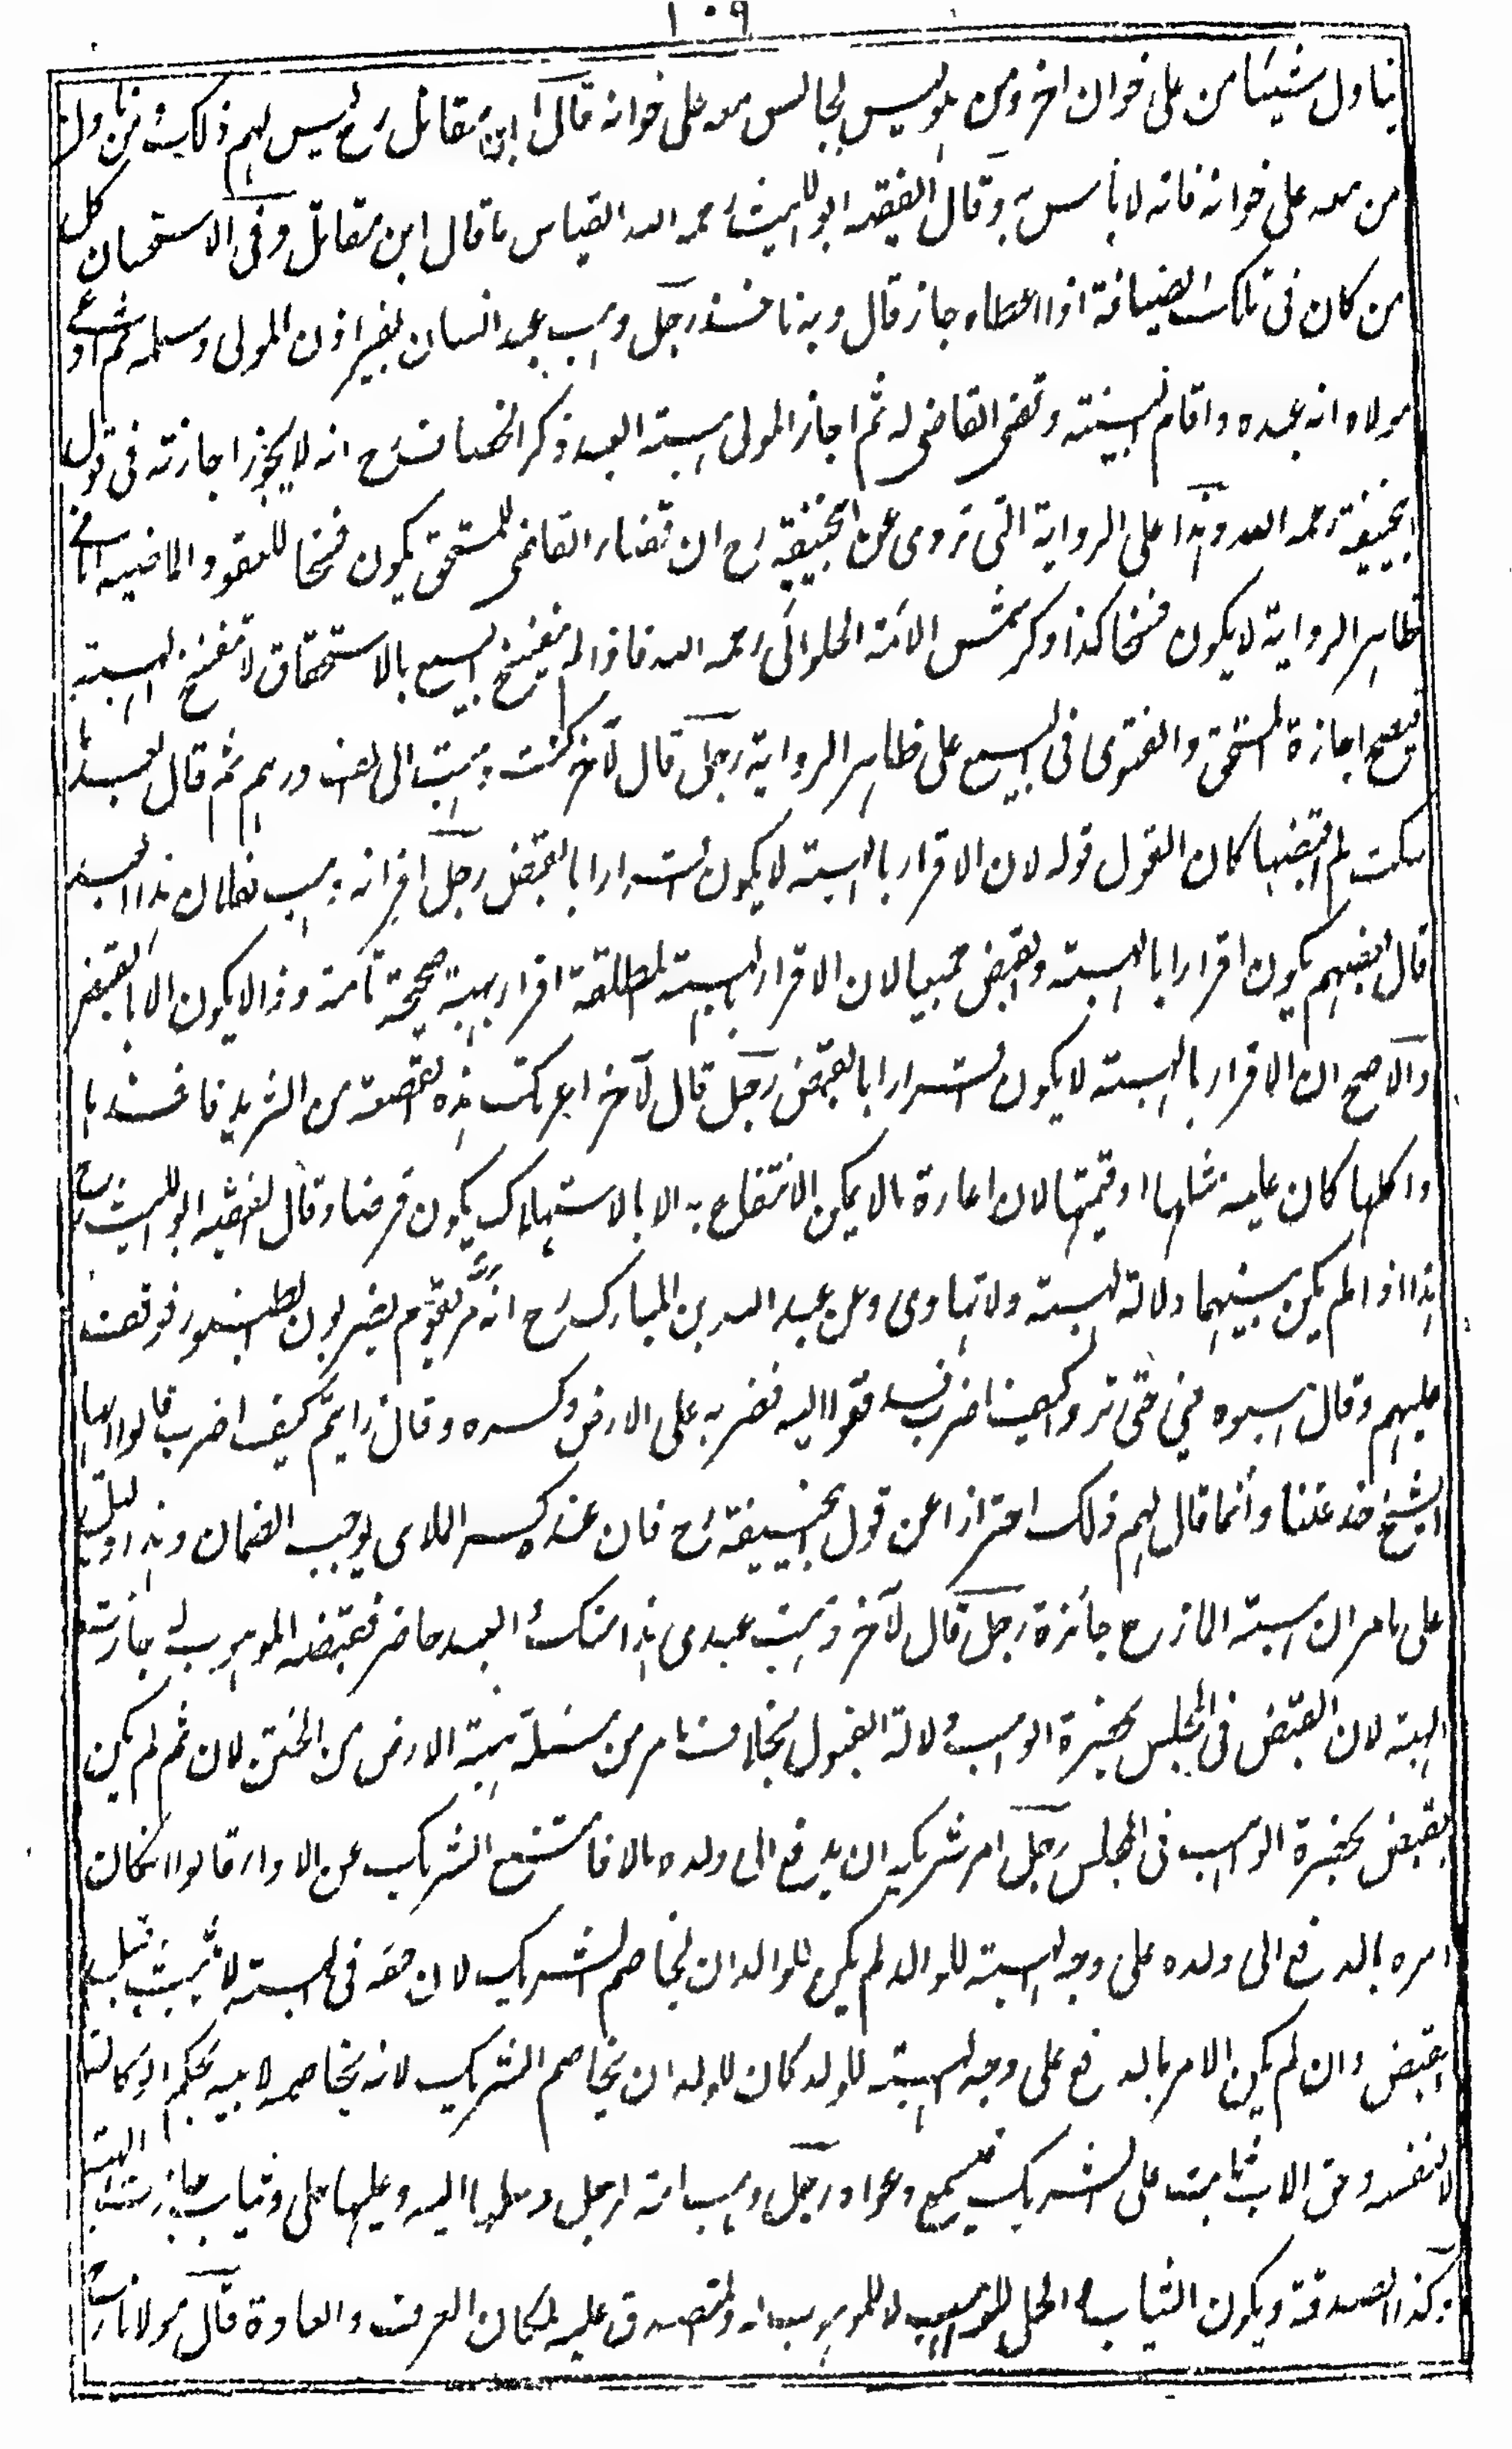 ١٠٩
يناول شيئا من على خوان اخر ومن هو ليس بجالس معه على خوانه قال ابن مقاتل رح ليس لهم ذلك فان ناول
من معه على خوانه فانه لا بأس به وقال الفقيه ابو الليث رحمه الله القياس ما قال ابن مقاتل وفى الاستحسان كل
من كان فى تلك الضيافة اذا اعطاه جاز قال وبه ناخذ رجل وهب عبد انسان بغير اذن المولى وسلمه ثم ادعى
مولاه انه عبده واقام البينة وقضى القاضى له ثم اجاز المولى هبة العبد ذكر الخصاف رح انه لا يجوز اجازته فى قول
ابيحنيفة رحمه الله وهذا على الرواية التى تروى عن ابيحنيفة رح ان قضاء القاضى للمستحق يكون فسخا للعقود الماضية اما فى
ظاهر الرواية لا يكون فسخا كذا ذكر شمس الائمة الحلوائى رحمه الله فاذا لم ينفسخ البيع بالاستحقاق لا تنفسخ الهبة
فيصح اجازة المستحق والفتوى فى البيع على ظاهر الرواية رجل قال لآخر كنت وهبت الى الف درهم ثم قال بعد ما
سكت لم اقبضها كان القول قوله لان الاقرار بالهبة لا يكون اقرارا بالقبض رجل اقر انه وهب لفلان هذا العبد
قال بعضهم يكون اقرارا بالهبة والقبض جميعا لان الاقرار بالهبة المطلقة اقرار بهبة صحيحة تامة وذا لا يكون الا بالقبض
والاصح ان الاقرار بالهبة لا يكون اقرارا بالقبض رجل قال لآخر اعرتك هذه القصعة من الثريد فاخذها
واكلها كان عليه مثلها او قيمتها لان اعارة ما لا يمكن الانتفاع به الا بالاستهلاك يكون قرضا وقال الفقيه ابو الليث رح
هذا اذا لم يكن بينهما دلالة الهبة ولا تهادى وعن عبد الله بن المبارك رح انه مر بقوم يضربون الطنبور فوقف
عليهم وقال هبوه منى حتى تروا كيف اضرب فدفعوا اليه فضربه على الارض وكسره وقال رايتم كيف اضرب قالوا ايها
الشيخ خدعتنا وانما قال لهم ذلك احترازا عن قول ابيحنيفة رح فان عنده كسر الملاهى يوجب الضمان وهذا دليل
على ما مر ان هبة المازح جائزة رجل قال لآخر وهبت عبدى هذا منك والعبد حاضر فقبضه الموهوب له جازت
الهبة لان القبض فى المجلس بحضرة الواهب دلالة القبول بخلاف ما مر من مسئلة هبة الارض من الختن لان ثم لم يكن
القبض بحضرة الواهب فى المجلس رجل امر شريكه ان يدفع الى ولده مالا فامتنع الشريك عن الاداء قالوا ان كان
امره بالدفع الى ولده على وجه الهبة للوالد لم يكن للوالد ان يخاصم الشريك لان حقه فى الهبة لا يثبت قبل
القبض وان لم يكن الامر بالدفع على وجه الهبة للولد كان للولد ان يخاصم الشريك لانه يخاصمه لابيه بحكم الوكالة
لا لنفسه وحق الاب ثابت على الشريك فيسمع دعواه رجل وهب امة لرجل وسلمها اليه وعليها حلى وثياب جازت الهبة
وكذا الصدقة ويكون الثياب و الحلى للواهب لا للموهوب له والمتصدق عليه لمكان العرف والعادة قال مولانا رح